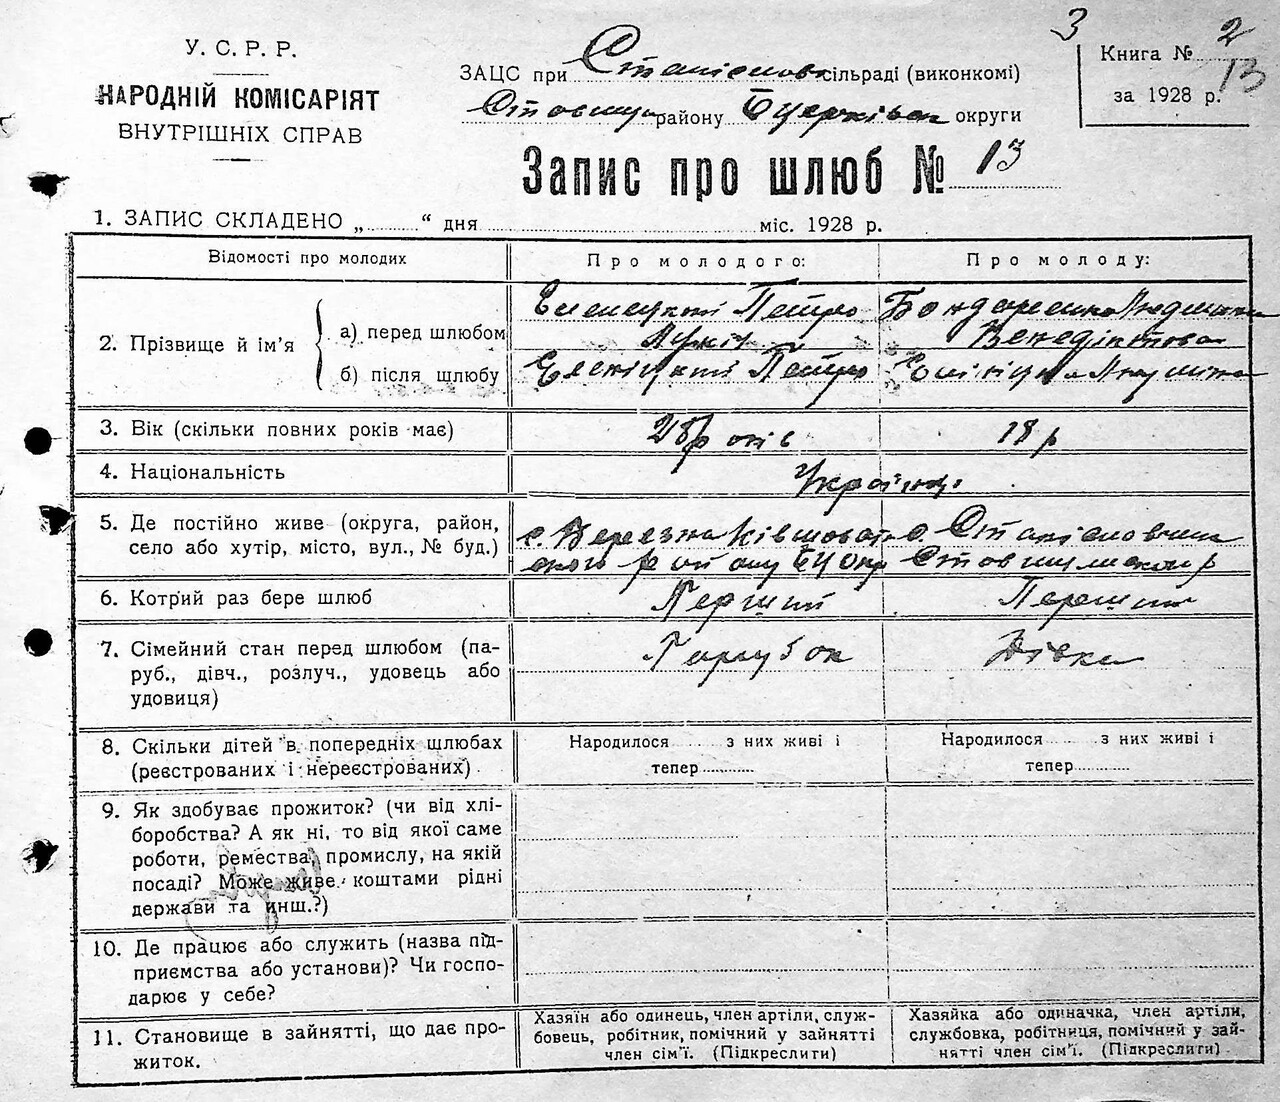 У. С. Р. Р.
НАРОДНІЙ КОМІСАРІЯТ
ВНУТРІШНІХ СПРАВ
ЗАЦС при сільраді (виконкомі)
району округи
3
Книга № 2
13
за 1928 р.
Запис про шлюб № 13
1. ЗАПИС СКЛАДЕНО „ “ дня міс. 1928 р.
Відомості про молодих
Про молодого:
Про молоду:
2. Прізвище й ім'я
а) перед шлюбом
б) після шлюбу
Петро
Бондаренко
Петро
3. Вік (скільки повних років має)
28 років
18 р
4. Національність
Українці
5. Де постійно живе (округа, район,
село або хутір, місто, вул., № буд.)
с. Березна
району БЦ Окр
с.
6. Котрий раз бере шлюб
Перший
Перший
7. Сімейний стан перед шлюбом (па-
руб., дівч., розлуч., удовець або
удовиця)
Парубок
Дівка
8. Скільки дітей в попередніх шлюбах
(реєстрованих і нереєстрованих)
Народилося ..... з них живі і
тепер
Народилося ..... з них живі і
тепер
9. Як здобуває прожиток? (чи від хлі-
боробства? А як ні, то від якої саме
роботи, ремества, промислу, на якій
посаді? Може живе коштами рідні
держави та инш.?)
10. Де працює або служить (назва під-
приємства або установи)? Чи госпо-
дарює у себе?
11. Становище в зайнятті, що дає про-
житок.
Хазяїн або одинець, член артіли, служ-
бовець, робітник, помічний у зайнятті
член сім'ї. (Підкреслити)
Хазяйка або одиначка, член артіли,
службовка, робітниця, помічний у зай-
нятті член сім'ї. (Підкреслити)